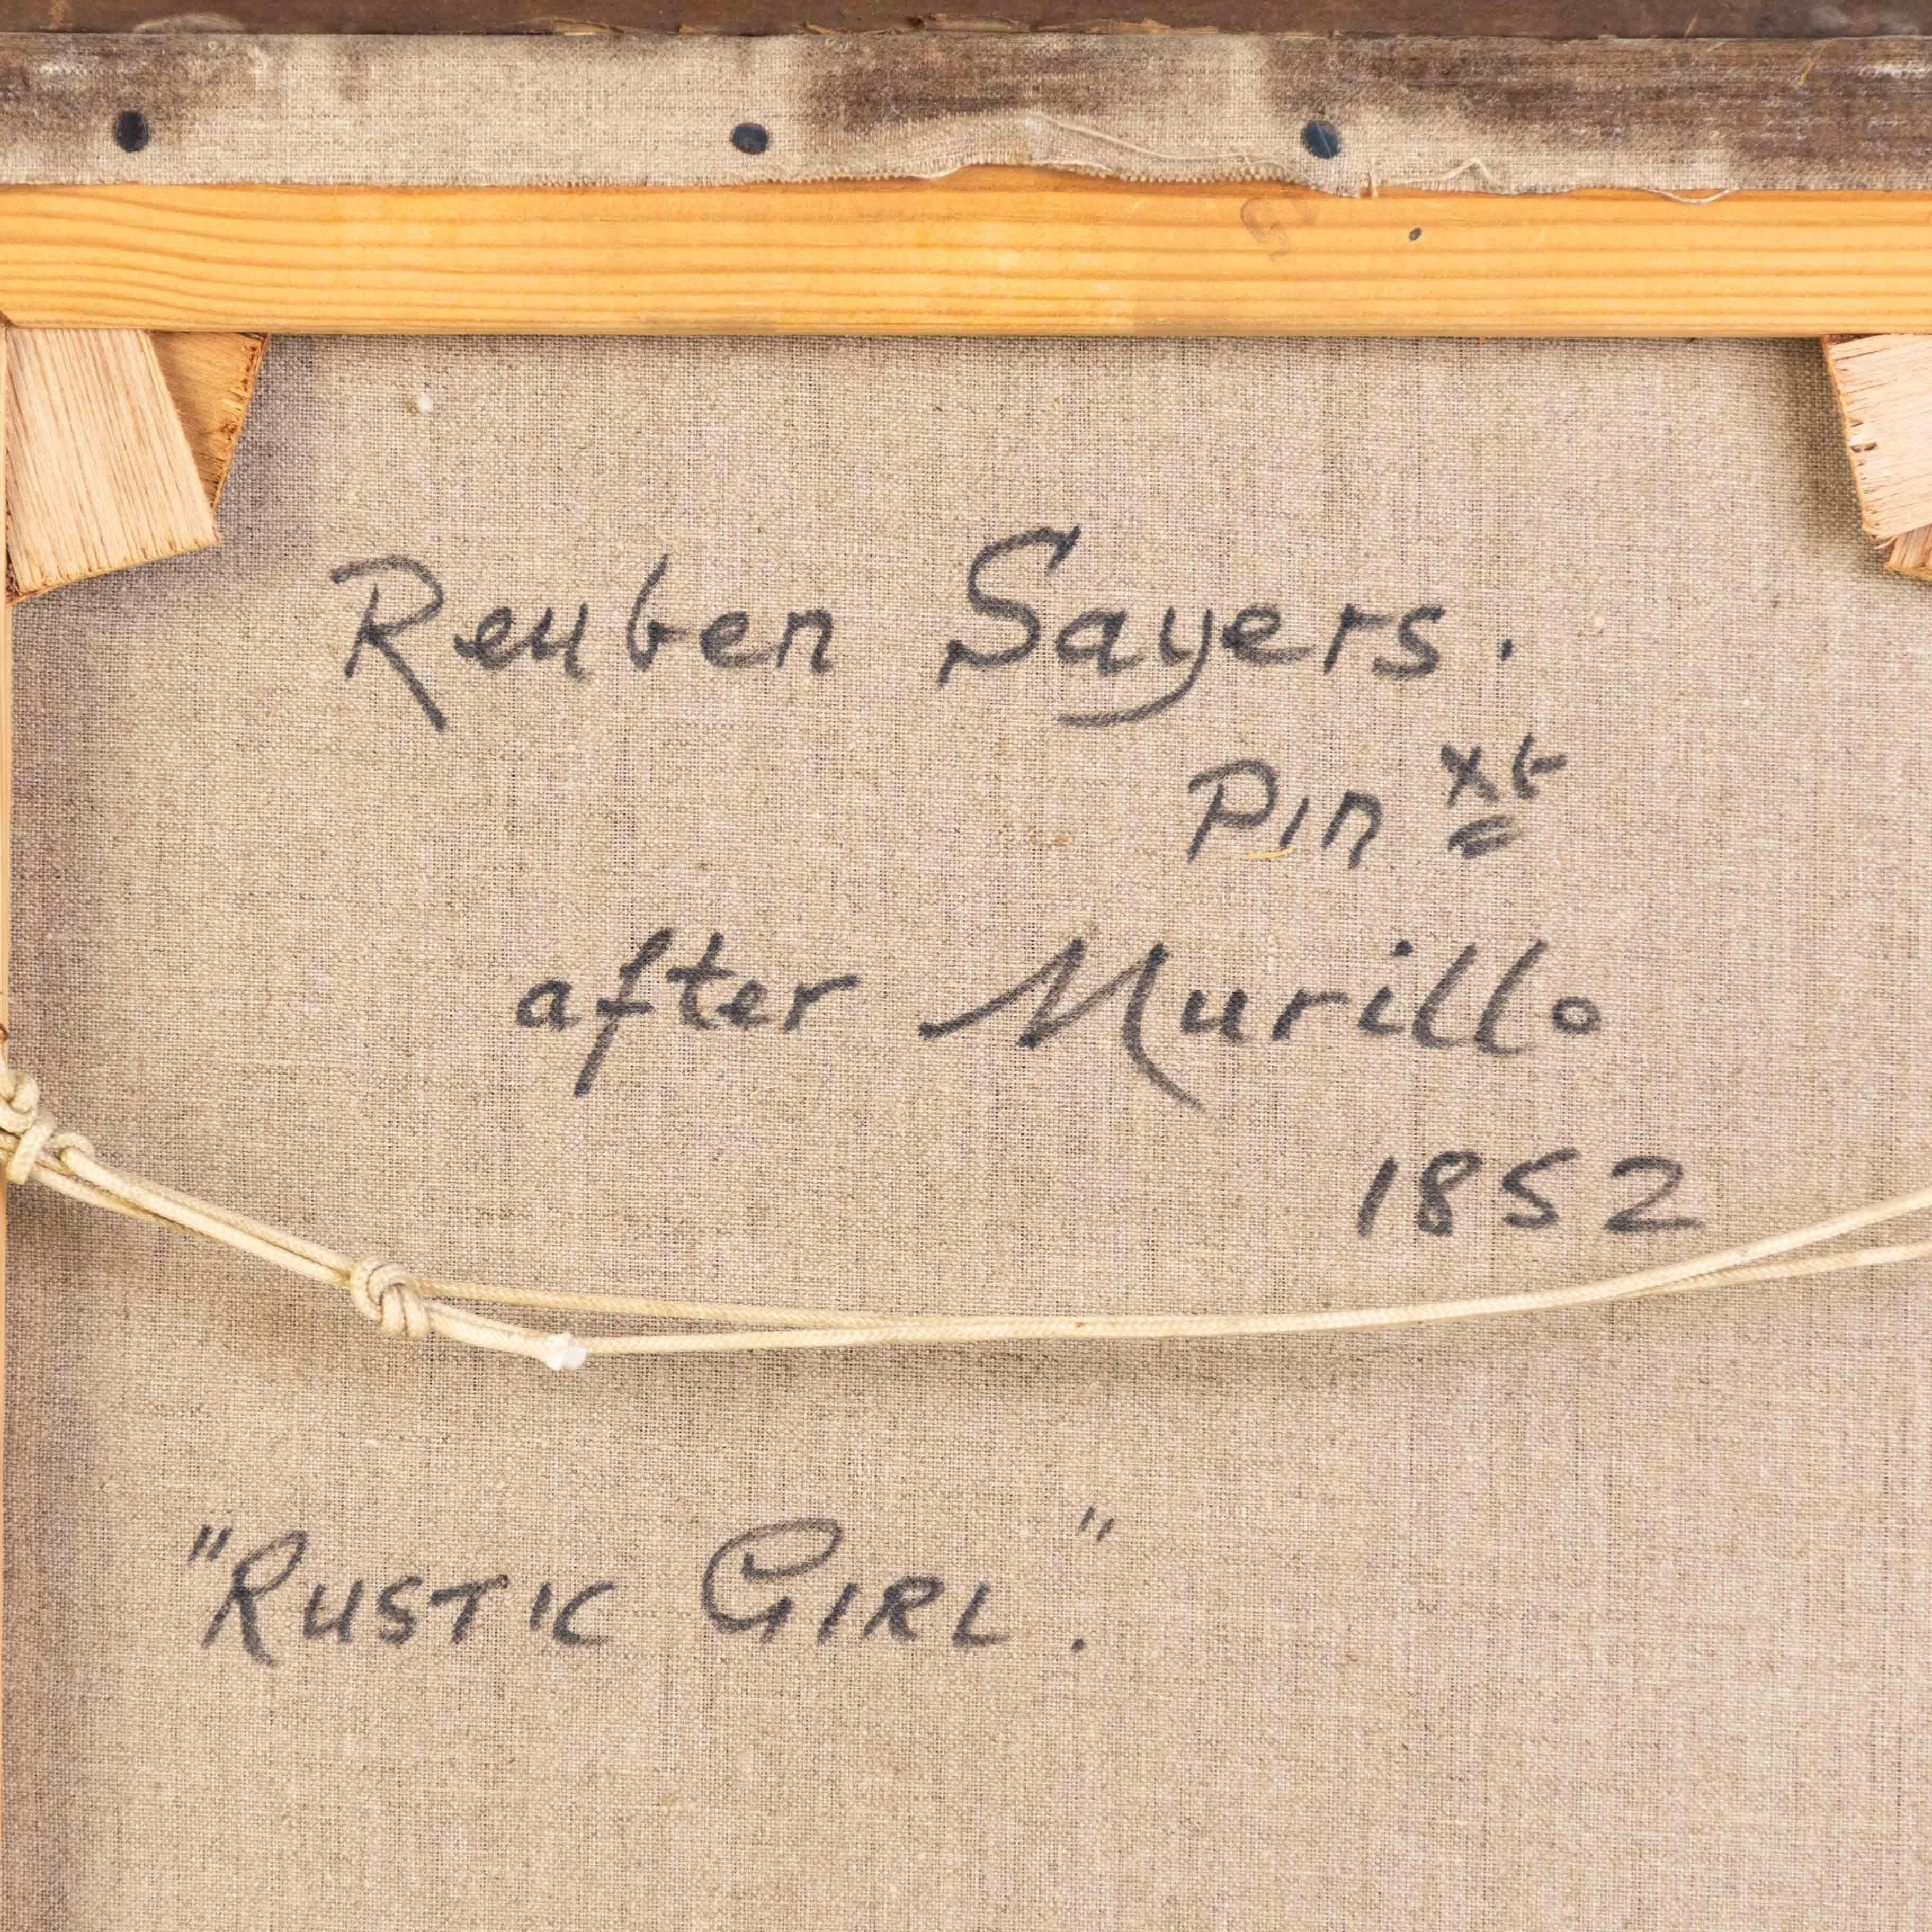 Reuben Sayers.
Pinxt
after Murillo
1852
"RUSTIC GIRL."